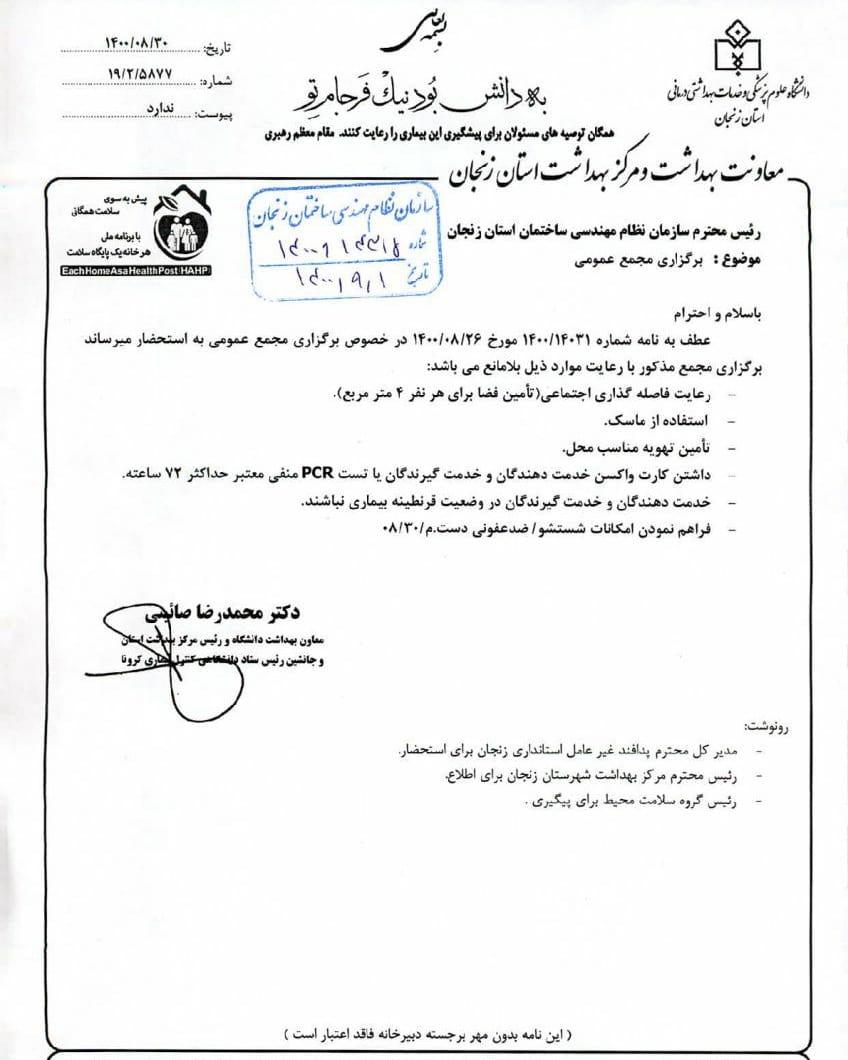 بسمه تعالی
تاریخ: ۱۴۰۰/۰۸/۳۰
شماره: ۱۹/۲/۵۸۷۷
پیوست: ندارد
دانشگاه علوم پزشکی و خدمات بهداشتی درمانی
استان زنجان
به دانش بود نیک فرجام تو
همگان توصیه های مسئولان برای پیشگیری این بیماری را رعایت کنند. مقام معظم رهبری
معاونت بهداشت و مرکز بهداشت استان زنجان
پیش به سوی
سلامت همگانی
با برنامه ملی
هر خانه یک پایگاه سلامت
Each Home As a Health Post (HAHP)
سازمان نظام مهندسی ساختمان زنجان
شماره
تاریخ ۱۴۰۰/۹/۱
رئیس محترم سازمان نظام مهندسی ساختمان استان زنجان
موضوع: برگزاری مجمع عمومی
باسلام و احترام
عطف به نامه شماره ۱۴۰۰/۱۴۰۳۱ مورخ ۱۴۰۰/۰۸/۲۶ در خصوص برگزاری مجمع عمومی به استحضار میرساند
برگزاری مجمع مذکور با رعایت موارد ذیل بلامانع می باشد:
- رعایت فاصله گذاری اجتماعی(تأمین فضا برای هر نفر ۴ متر مربع).
- استفاده از ماسک.
- تأمین تهویه مناسب محل.
- داشتن کارت واکسن خدمت دهندگان و خدمت گیرندگان یا تست PCR منفی معتبر حداکثر ۷۲ ساعته.
- خدمت دهندگان و خدمت گیرندگان در وضعیت قرنطینه بیماری نباشند.
- فراهم نمودن امکانات شستشو/ ضدعفونی دست.م/۰۸/۳۰
دکتر محمدرضا صائینی
معاون بهداشت دانشگاه و رئیس مرکز بهداشت استان
و جانشین رئیس ستاد دانشگاهی کنترل بیماری کرونا
رونوشت:
- مدیر کل محترم پدافند غیر عامل استانداری زنجان برای استحضار.
- رئیس محترم مرکز بهداشت شهرستان زنجان برای اطلاع.
- رئیس گروه سلامت محیط برای پیگیری .
( این نامه بدون مهر برجسته دبیرخانه فاقد اعتبار است )